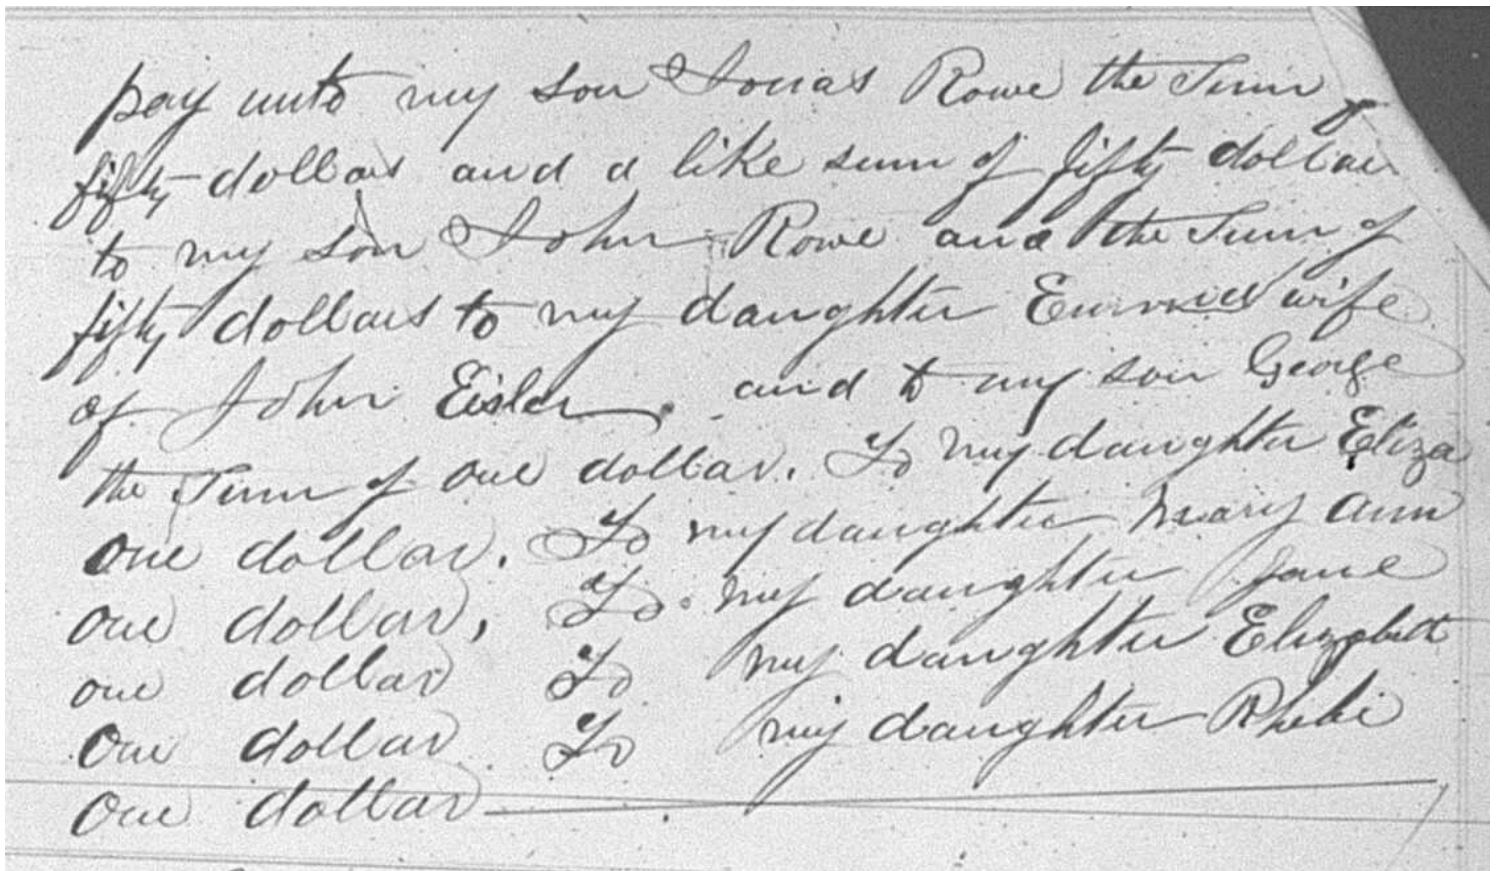 pay unto my son Jonas Rowe the Sum of
fifty dollars and a like sum of fifty dollars
to my son John Rowe and the Sum of
fifty dollars to my daughter wife
of John Eisler and to my son George
the Sum of one dollar. To my daughter Eliza
One dollar. To my daughter Mary Ann
one dollar, To my daughter Jane
one dollar To my daughter Elizabeth
One dollar To my daughter Phebi
One dollar